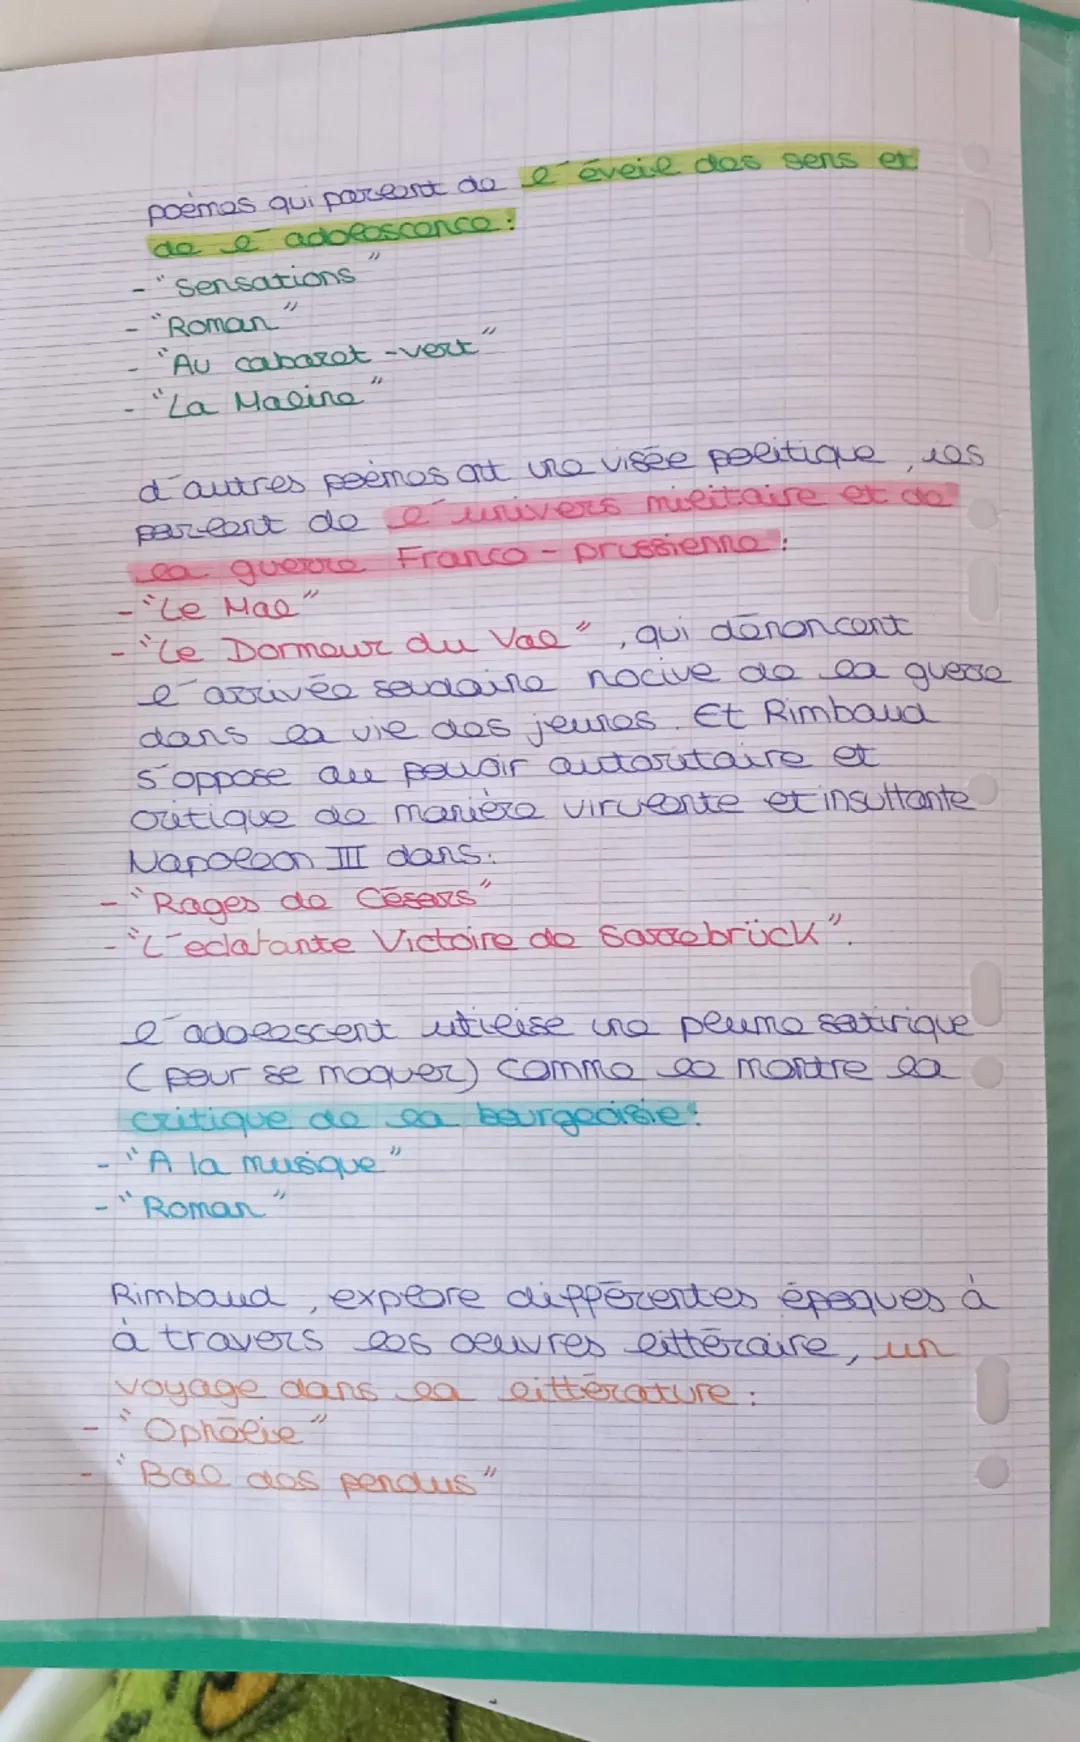 poèmes qui parlent de l'éveil des sens et
de l'adolescence :
- "Sensations"
- "Roman"
- "Au cabaret-vert"
- "La Maline"
d'autres poèmes ont une visée politique, les
parlent de l'univers militaire et de
la guerre Franco-prussienne :
- "Le Mal"
- "Le Dormeur du Val", qui dénoncent
l'arrivée soudaine nocive de la guerre
dans la vie des jeunes. Et Rimbaud
s'oppose au pouvoir autoritaire et
critique de manière virulente et insultante
Napoléon III dans :
- "Rages de Césars"
- "L'eclatante Victoire de Sarrebrück".
l'adolescent utilise une plume satirique
(pour se moquer) comme le montre la
critique de la bourgeoisie :
- "A la musique"
- "Roman"
Rimbaud, explore différentes époques à
à travers les oeuvres littéraire, un
voyage dans la littérature :
- "Ophélie"
- "Bal des pendus"